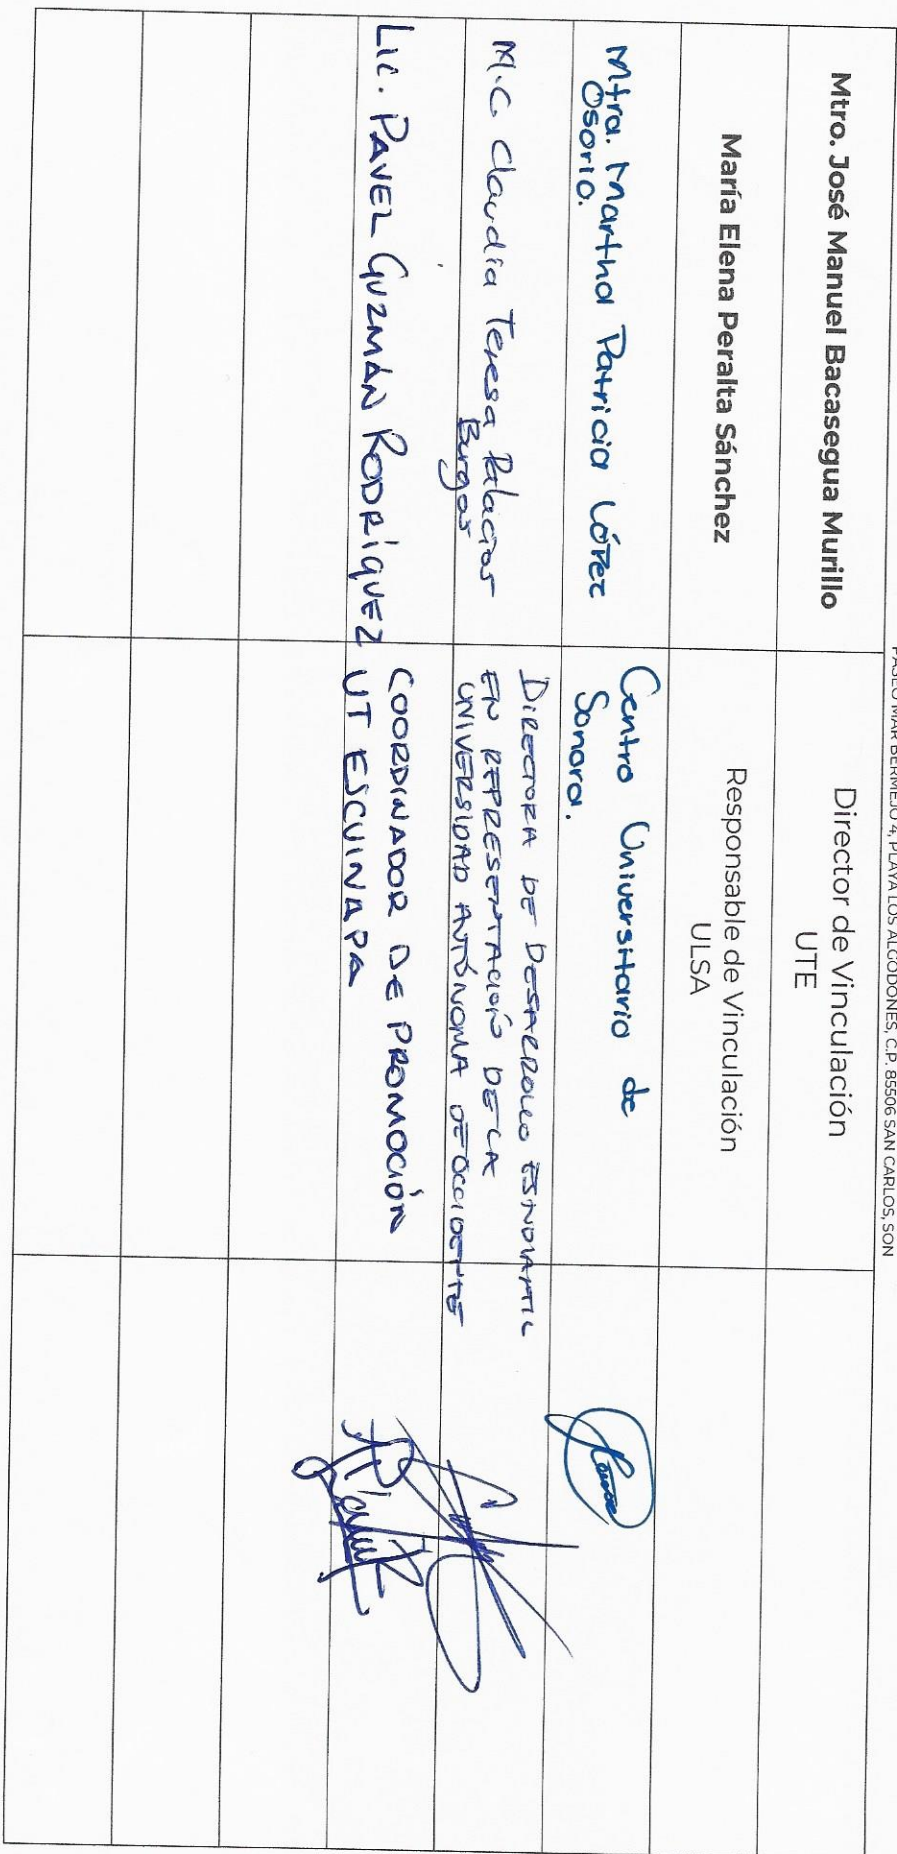 PASEO MAR BERMEJO 4, PLAYA LOS ALGODONES, C.P. 85506 SAN CARLOS, SON
Mtro. José Manuel Bacasegua Murillo
Director de Vinculación
UTE
María Elena Peralta Sánchez
Responsable de Vinculación
ULSA
Mtra. Martha Patricia López
Osorio.
Centro Universitario de
Sonora.
M.C Claudia Teresa Palacios
Burgos
DIRECTORA DE DESARROLLO ESTUDIANTIL
EN REPRESENTACIÓN DE LA
UNIVERSIDAD AUTÓNOMA DE OCCIDENTE
Lic. PAVEL GUZMÁN RODRÍGUEZ
COORDINADOR DE PROMOCIÓN
UT ESCUINAPA